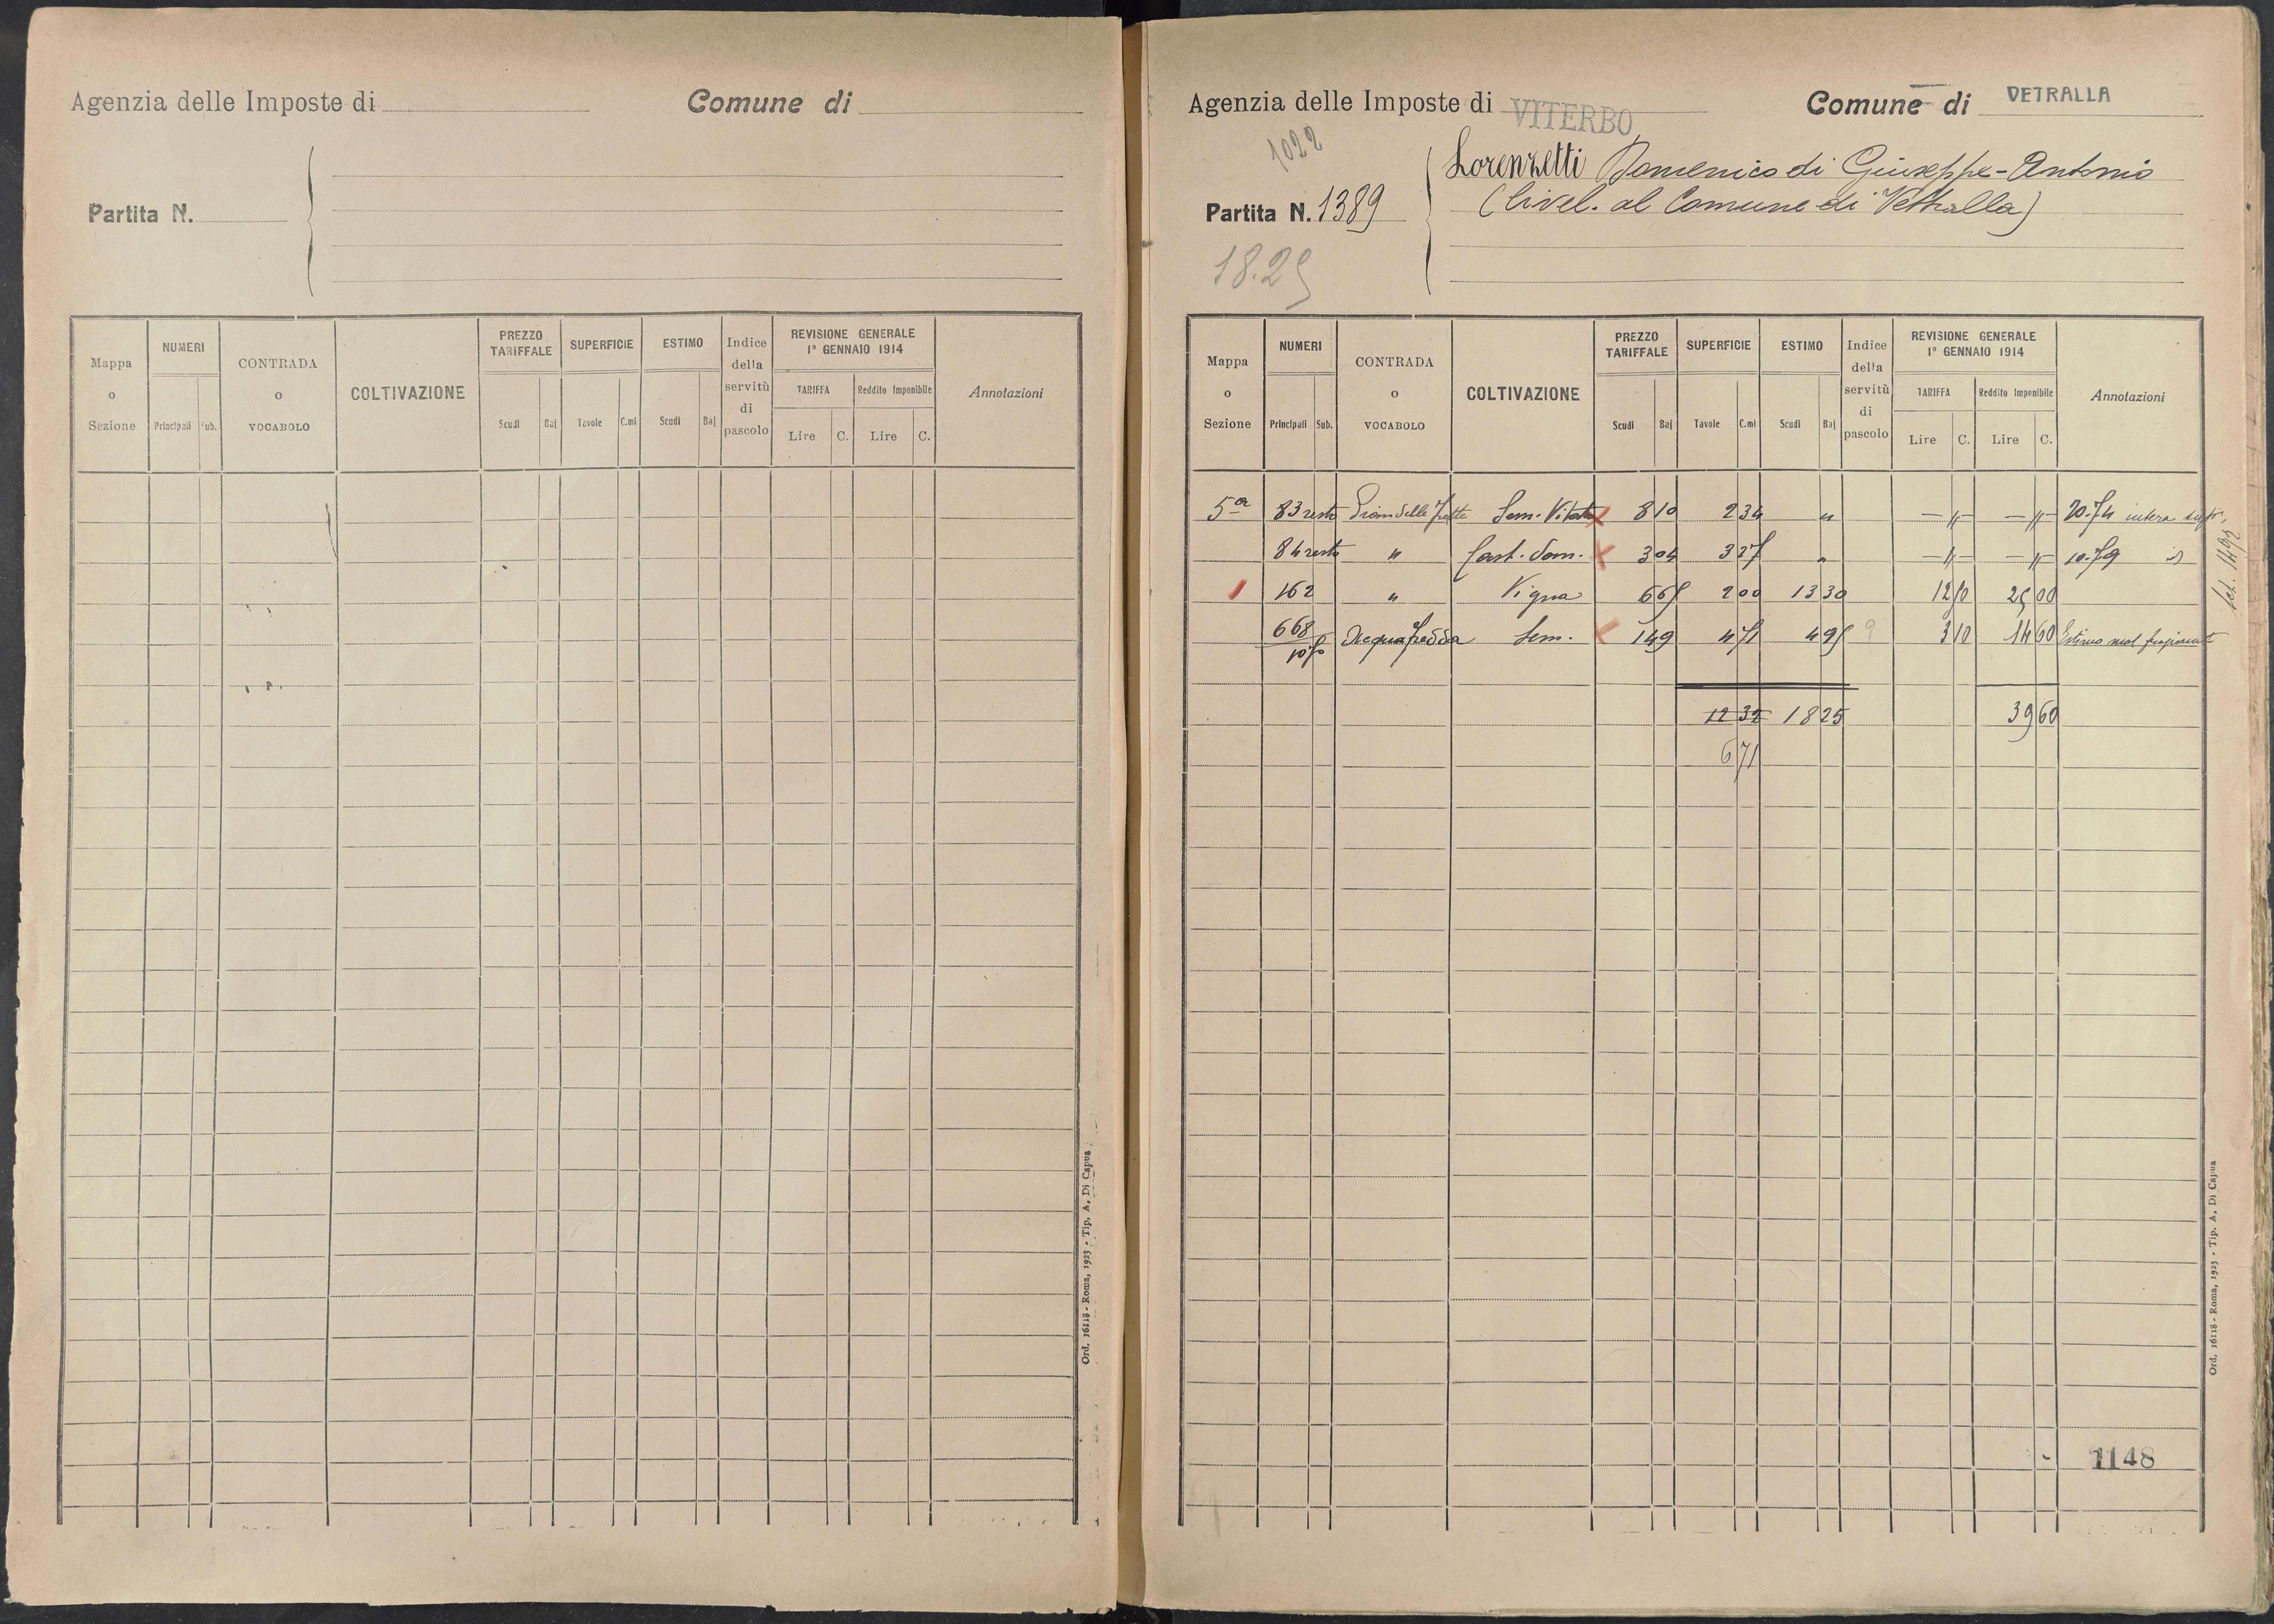 Agenzia delle Imposte di
Comune di
Partita N.
Mappa o Sezione
NUMERI
Principali Sub.
CONTRADA o VOCABOLO
COLTIVAZIONE
PREZZO TARIFFALE
Scudi Baj
SUPERFICIE
Tavole C.mi
ESTIMO
Scudi Baj
Indice della servitù di pascolo
REVISIONE GENERALE
1° GENNAIO 1914
TARIFFA Reddito Imponibile
Lire C. Lire C.
Annotazioni
Ord. 16118 - Roma, 1923 - Tip. A. Di Capua
Agenzia delle Imposte di VITERBO
Comune di VETRALLA
1022
Lorenzetti Domenico di Giuseppe-Antonio
(livel. al Comune di Vetralla)
Partita N. 1389
18.25
Mappa o Sezione
NUMERI
Principali Sub.
CONTRADA o VOCABOLO
COLTIVAZIONE
PREZZO TARIFFALE
Scudi Baj
SUPERFICIE
Tavole C.mi
ESTIMO
Scudi Baj
Indice della servitù di pascolo
REVISIONE GENERALE
1° GENNAIO 1914
TARIFFA Reddito Imponibile
Lire C. Lire C.
Annotazioni
5a 83 resto Sem. Vitato 8 10 2 34 " — " — — " — 20.74 intera
84 resto " Cast. Dom. 3 04 3 27 " — " — — " — 10.79 id
162 " Vigna 6 65 2 00 13 30 12 50 25 00
668/1070 Acquafredda Sem. 1 49 4 71 4 95 9 3 10 14 60 Estimo mal
12 32 18 25 39 60
6 71
1148
Ord. 16118 - Roma, 1923 - Tip. A. Di Capua